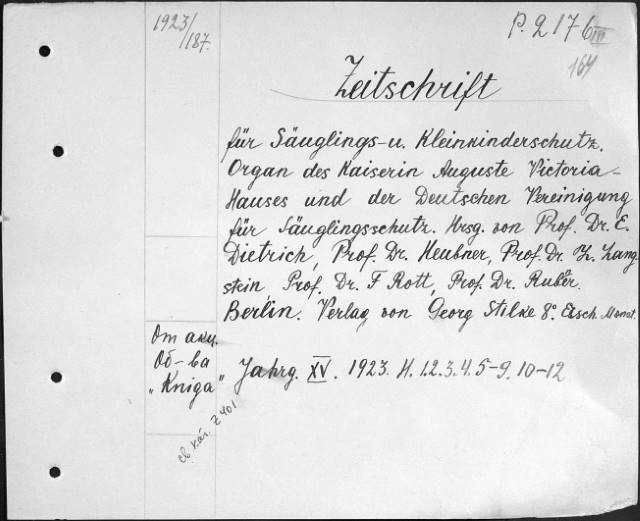 1923/187.
P. 2176 III
164
Zeitschrift
für Säuglings- u. Kleinkinderschutz.
Organ des Kaiserin Auguste Victoria-
Hauses und der Deutschen Vereinigung
für Säuglingsschutz. Hrsg. von Prof. Dr. E.
Dietrich, Prof. Dr. Heubner, Prof. Dr. Lang
stein, Prof. Dr. F Rott, Prof. Dr.
Berlin. Verlag von Georg Stilke 8°. Monat.
От акц.
Об-ва
"Kniga"
Jahrg. XV. 1923. H. 1.2.3.4.5-9. 10-12
Z 401